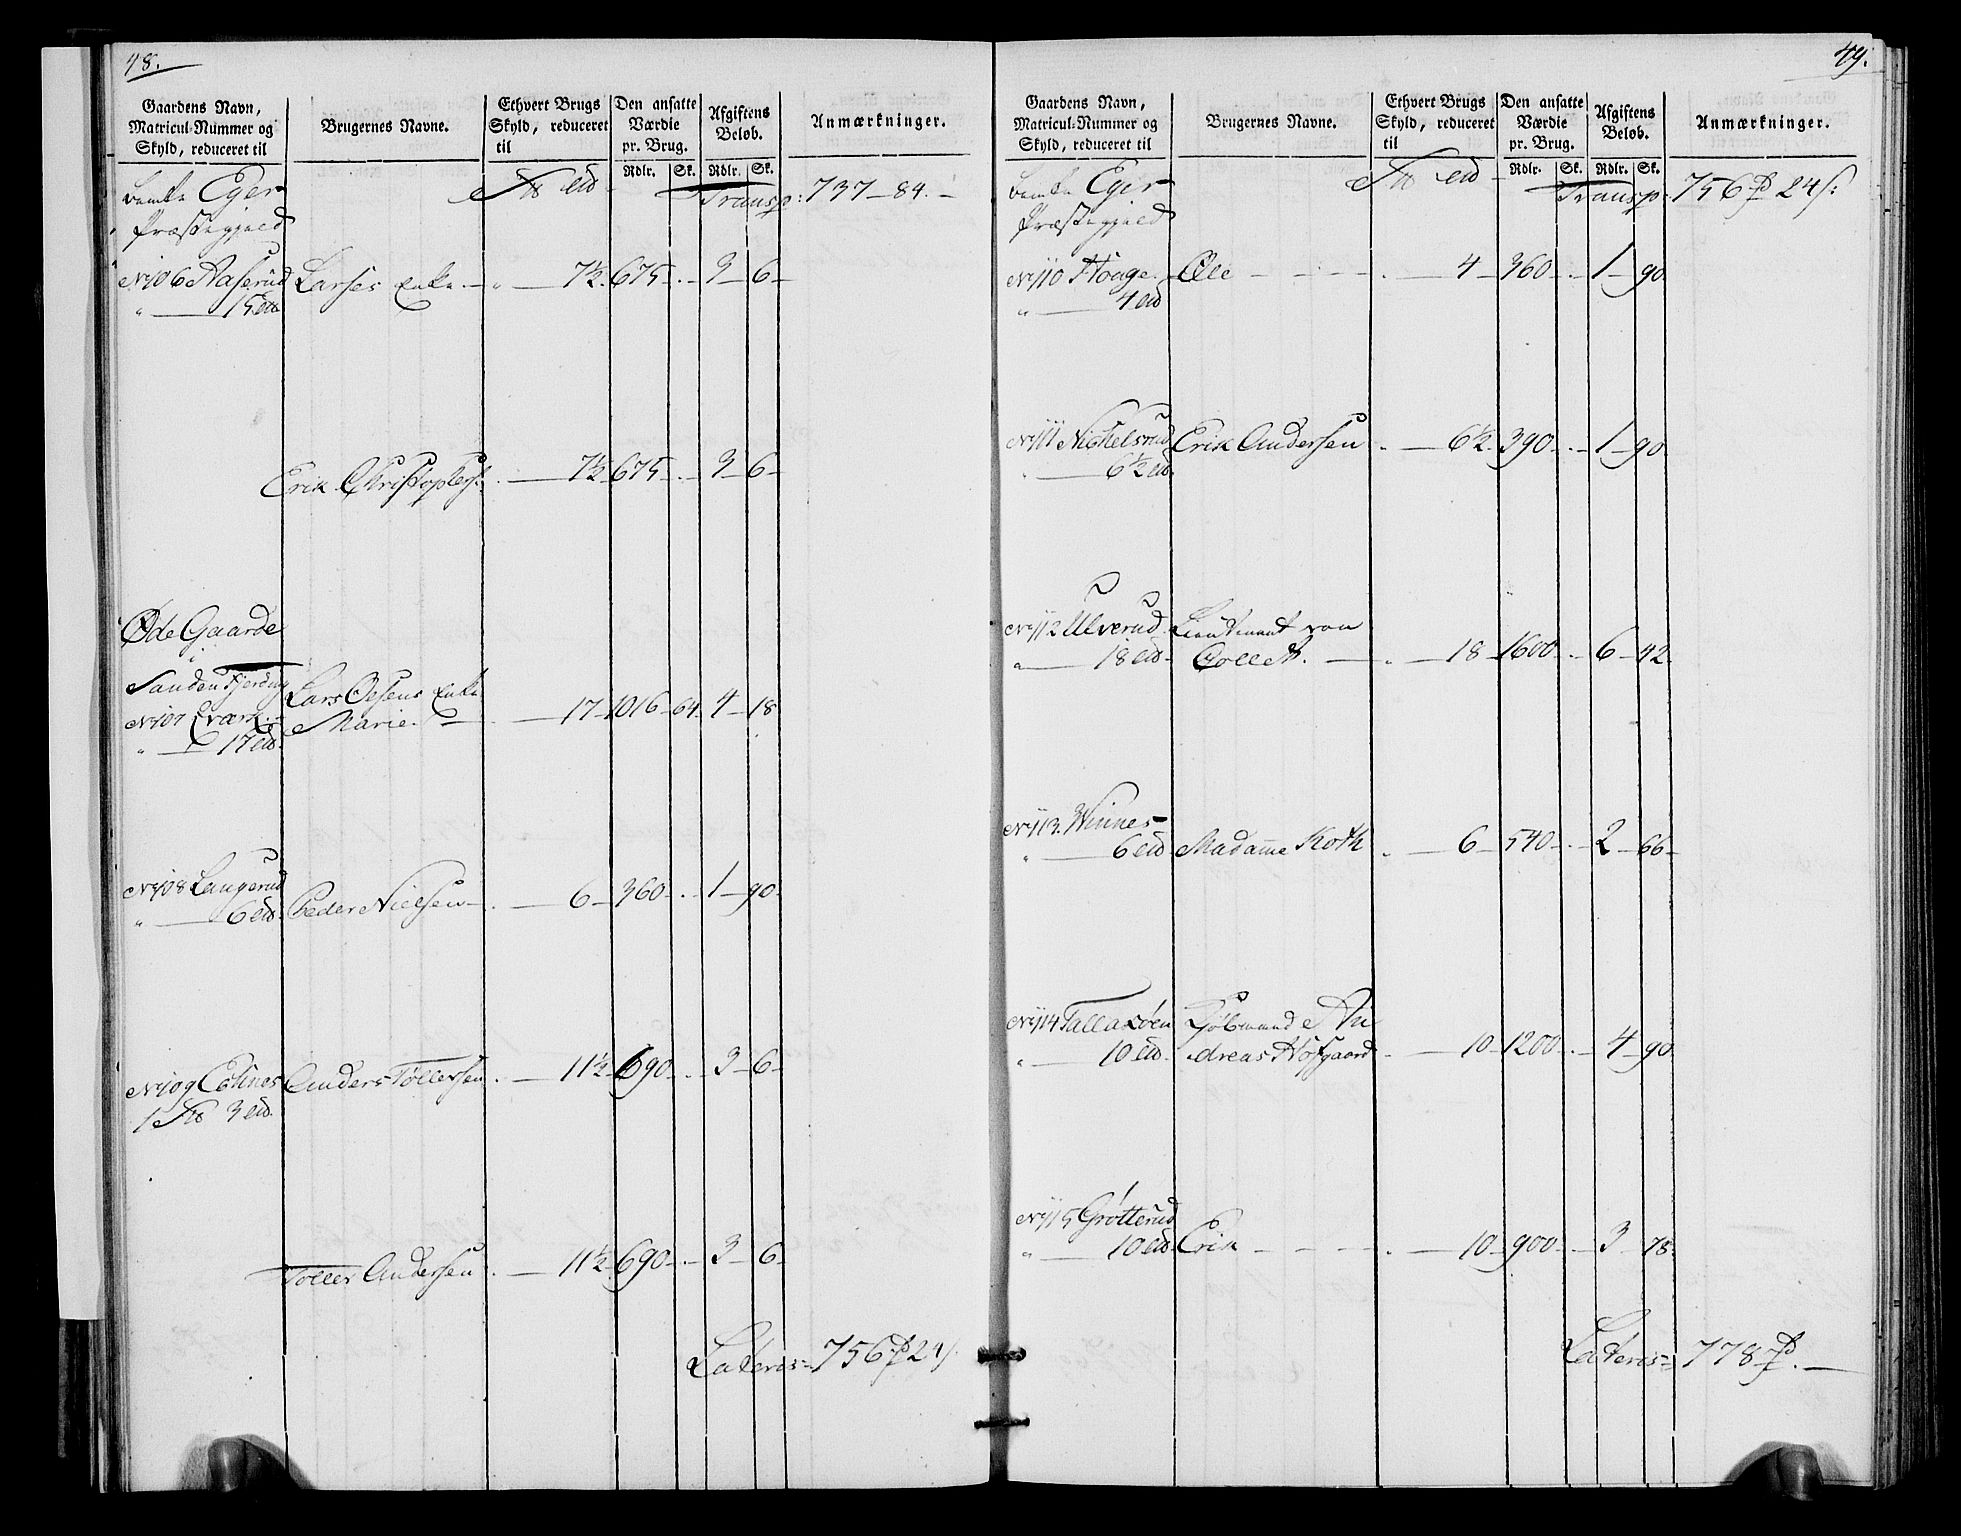 48.
Gaardens Navn, Matricul-Nummer og Skyld, reduceret til
Brugernes Navne.
Ethvert Brugs Skyld, reduceret til
Den ansatte Værdie pr. Brug.
Afgiftens Beløb.
Anmærkninger.
Rdlr. Sk. Rdlr. Sk.
Eger Transp: 737 - 84. -
Præstegield
No 106 Aaserud Larses Enke - 7½ 675 - 3 - 6 -
15
Erik Christophers. 7½ 675 - 3 - 6 -
Øde Gaarde
i
Sanden Fjerding Lars Olsens Enke
No 107 Marie. 17 - 1016 - 64 4 - 18
17
No 108 Langerud
6 Peder Nielsen - 6 - 360 - 1 - 90 -
No 109 Anders Tollersen 11½ 690 - 3 - 6 -
1 3
Toller Andersen 11½ 690 - 3 - 6 -
Lateris = 756 24
49.
Gaardens Navn, Matricul-Nummer og Skyld, reduceret til
Brugernes Navne.
Ethvert Brugs Skyld, reduceret til
Den ansatte Værdie pr. Brug.
Afgiftens Beløb.
Anmærkninger.
Rdlr. Sk. Rdlr. Sk.
Eger Transp: 756 24
Præstegield
No 110 Houge Ole - - - 4 - 360 - 1 - 90
4
No 111 Nichelsrud Erik Andersen 6½ 390 - 1 - 90
6½
No 112 Ulverud Lieutenant von
18 Collet. 18 - 1600 - 6 - 42
No 113. Winnes
6 Madamme Koth 6 - 540 - 2 - 66 -
No 114 Kjøbmand An
10 dreas Hofgaard 10 - 1200 - 4 - 90
No 115 Grøtterud
10 Erik - - - 10 - 900 - 3 - 78
Lateris = 778